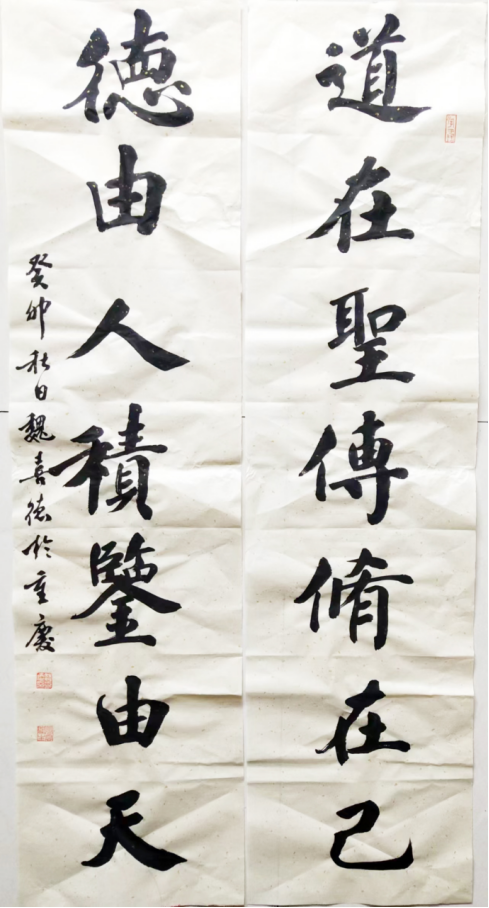 道在聖傳脩在己
德由人積鑒由天
癸卯秋日魏喜德於重慶